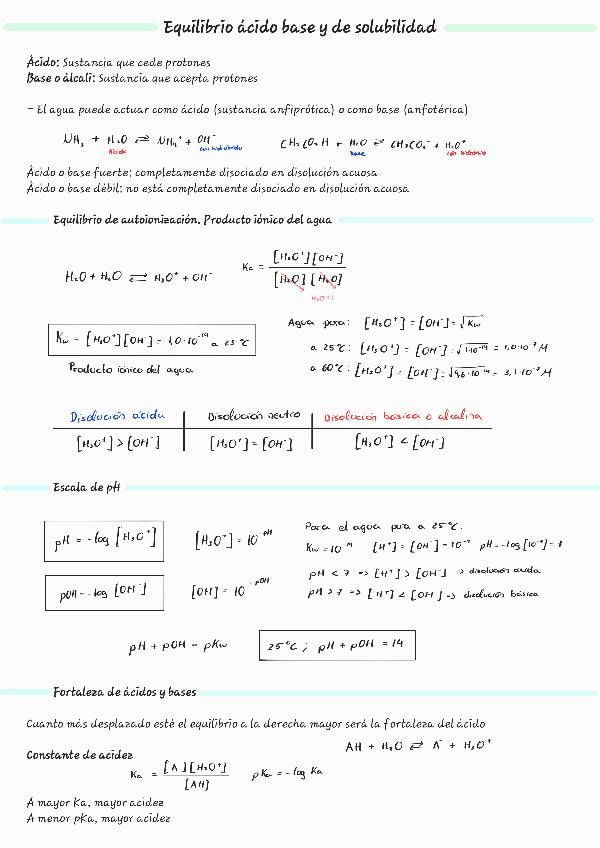 Equilibrio ácido base y de solubilidad
Ácido: Sustancia que cede protones
Base o álcali: Sustancia que acepta protones
- El agua puede actuar como ácido (sustancia anfiprótica) o como base (anfotérica)
NH₃ + H₂O ⇌ NH₄⁺ + OH⁻ CH₃CO₂H + H₂O ⇌ CH₃CO₂⁻ + H₃O⁺
Ácido ion hidróxido base ion hidronio
Ácido o base fuerte: completamente disociado en disolución acuosa
Ácido o base débil: no está completamente disociado en disolución acuosa
Equilibrio de autoionización. Producto iónico del agua
H₂O + H₂O ⇌ H₃O⁺ + OH⁻ Kc = [H₃O⁺][OH⁻] / [H₂O][H₂O]
H₂O = 1
Kw = [H₃O⁺][OH⁻] = 1,0·10⁻¹⁴ a 25°C
Producto iónico del agua
Agua pura: [H₃O⁺] = [OH⁻] = √Kw
a 25°C: [H₃O⁺] = [OH⁻] = √1·10⁻¹⁴ = 1,0·10⁻⁷ M
a 60°C: [H₃O⁺] = [OH⁻] = √9,6·10⁻¹⁴ = 3,1·10⁻⁷ M
Disolución ácida Disolución neutra Disolución básica o alcalina
[H₃O⁺] > [OH⁻] [H₃O⁺] = [OH⁻] [H₃O⁺] < [OH⁻]
Escala de pH
pH = -log [H₃O⁺] [H₃O⁺] = 10⁻ᵖᴴ
pOH = -log [OH⁻] [OH] = 10⁻ᵖᴼᴴ
Para el agua pura a 25°C:
Kw = 10⁻¹⁴ [H⁺] = [OH⁻] = 10⁻⁷ pH = -log [10⁻⁷] = 7
pH < 7 → [H⁺] > [OH⁻] → disolución ácida
pH > 7 → [H⁺] < [OH⁻] → disolución básica
pH + pOH = pKw 25°C ; pH + pOH = 14
Fortaleza de ácidos y bases
Cuanto más desplazado esté el equilibrio a la derecha mayor será la fortaleza del ácido
AH + H₂O ⇌ A⁻ + H₃O⁺
Constante de acidez
Ka = [A⁻][H₃O⁺] / [AH] pKa = -log Ka
A mayor Ka, mayor acidez
A menor pKa, mayor acidez